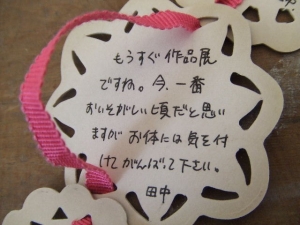 もうすぐ作品展
ですね。今、一番
おいそがしい頃だと思い
ますが お体には気を付
けてがんばって下さい。
田中